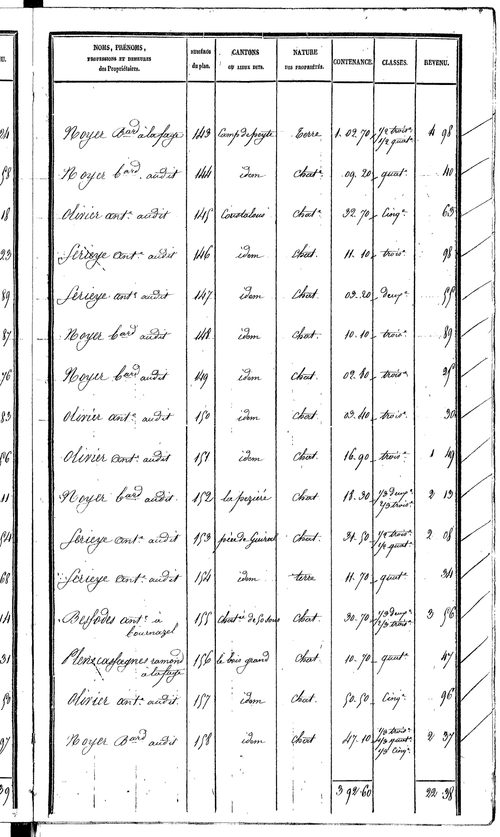 NOMS, PRÉNOMS, PROFESSIONS ET DEMEURES des Propriétaires. NUMÉROS du plan. CANTONS OU LIEUX DITS. NATURE DES PROPRIÉTÉS. CONTENANCE. CLASSES. REVENU.
Noyer Bard à lafaye 143 Camp de peyte terre 1. 02. 70 1/2 trois. 1/2 quat. 4 98
Noyer bard. audit 144 idem Chat. 09. 20 quat. 40
Olivier ant. audit 145 Coustalous Chat. 32. 70 Cinq. 63
Serieye ant. audit 146 idem Chat. 11. 10 trois. 98
Serieye ant. audit 147 idem Chat. 03. 20 deux. 55
Noyer bard audit 148 idem Chat. 10. 10 trois. 89
Noyer bard audit 149 idem Chat. 02. 40 trois.
Olivier ant. audit 150 idem Chat. 03. 40 trois. 30
Olivier ant. audit 151 idem Chat. 16. 90 trois. 1 49
Noyer bard audit. 152 la peziere Chat 18. 30 1/3 deux. 2/3 trois. 2 13
Serieye ant. audit 153 Chat. 31. 50 1/2 trois. 1/2 quat. 2 08
Serieye ant. audit 154 idem terre 11. 70 quat. 34
Besfodes ant. à bournazel 155 Chat. 30. 70 1/3 deux. 2/3 trois. 3 56
ramond à lafaye 156 le bois grand Chat. 10. 70 quat. 47
Olivier ant. audit 157 idem Chat. 50. 50 Cinq. 96
Noyer Bard audit 158 idem Chat 47. 10 1/3 trois. 1/3 quat. 1/3 Cinq. 2 37
3 92 60 22 38